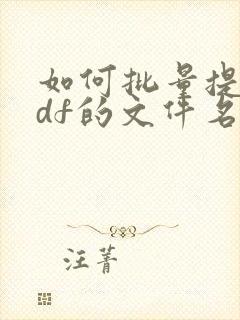 如何批量提
df的文件名
汪菁